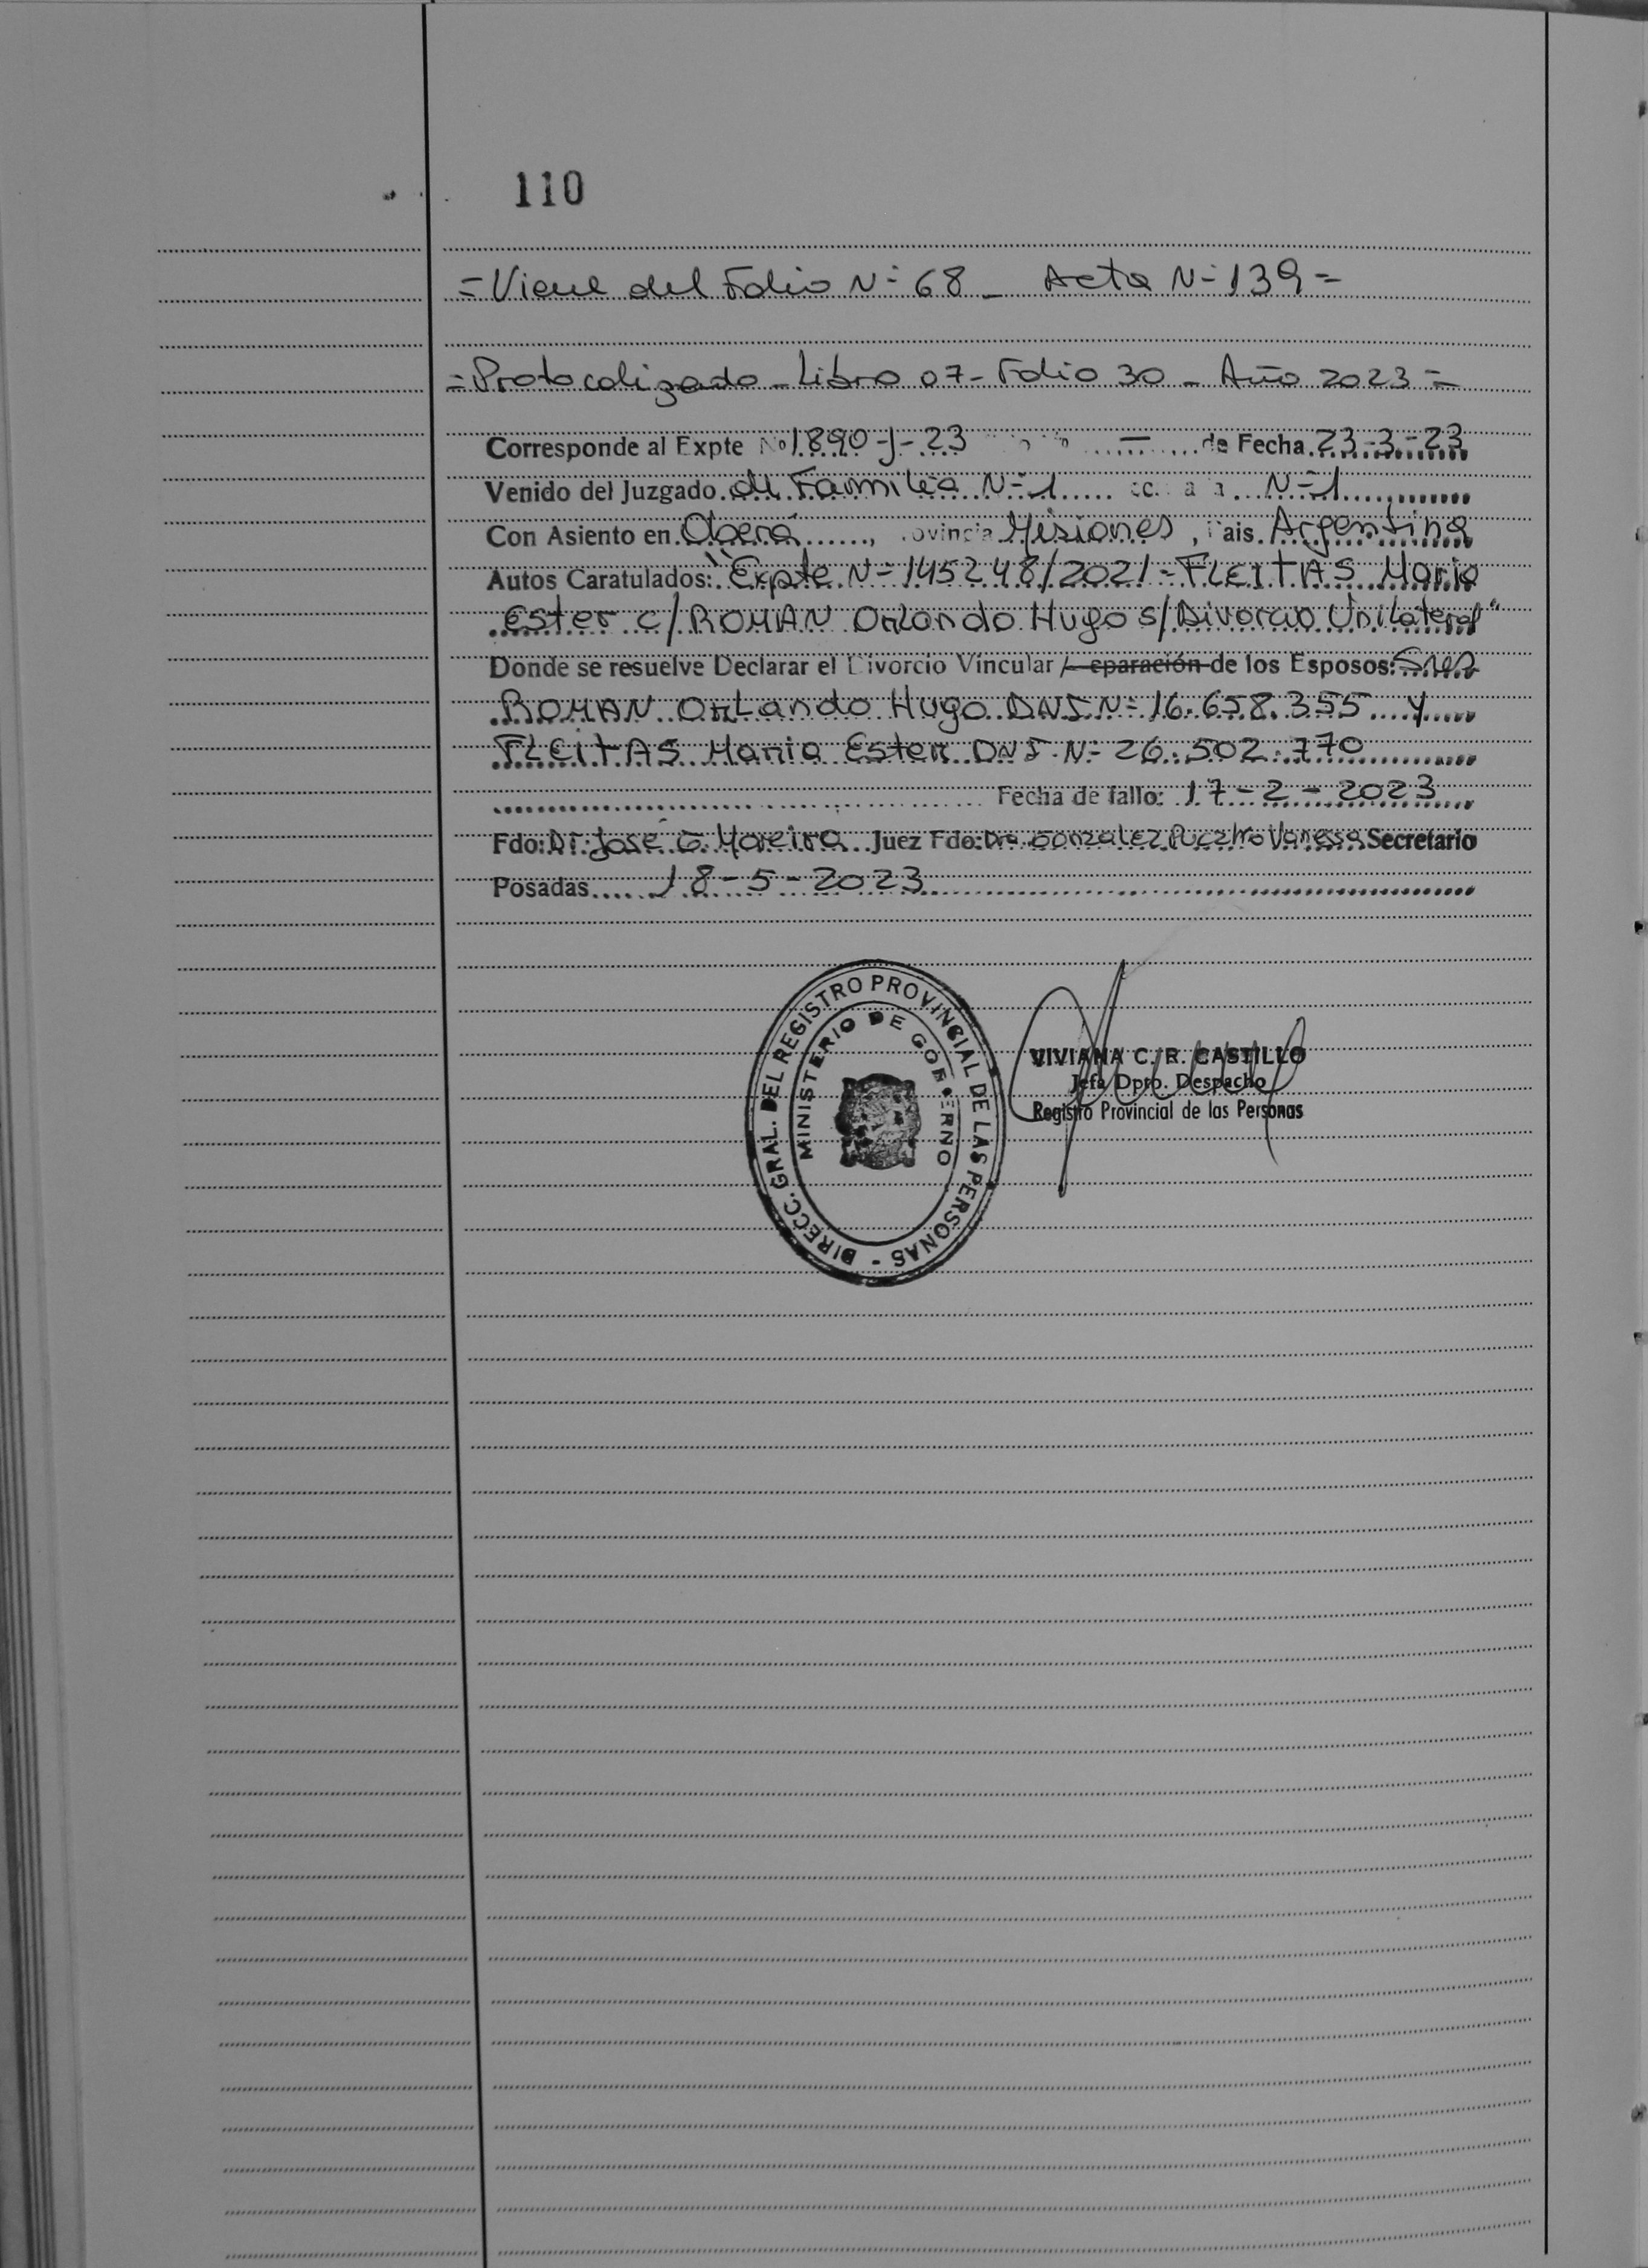 110
=Viene del Folio N=68_ Acta N=139=
=Protocolizado_Libro 07-Folio 30_Año 2023=
Corresponde al Expte Nº 1890-J-23 — de Fecha 23-3-23
Venido del Juzgado de Familia N=1 N=1
Con Asiento en Oberá, ovincia Misiones, Pais. Argentina
Autos Caratulados: "Expte N=145248/2021=FLEITAS Maria
Ester c/ROMAN Orlando Hugo s/Divorcio Unilateral"
Donde se resuelve Declarar el Divorcio Vincular / eparación de los Esposos: Sres
ROMAN Orlando Hugo DNI N=16.658.355 y
FLEITAS Maria Ester DNI N=26.502.770
Fecha de fallo: 17-2-2023
Fdo: Dr. José G. Moreira Juez Fdo: Dra Gonzalez Vanessa Secretario
Posadas 18-5-2023
DIRECC. GRAL. DEL REGISTRO PROVINCIAL DE LAS PERSONAS -
MINISTERIO DE GOBIERNO
VIVIANA C. R. CASTILLO
Jefa Dpto. Despacho
Registro Provincial de las Personas